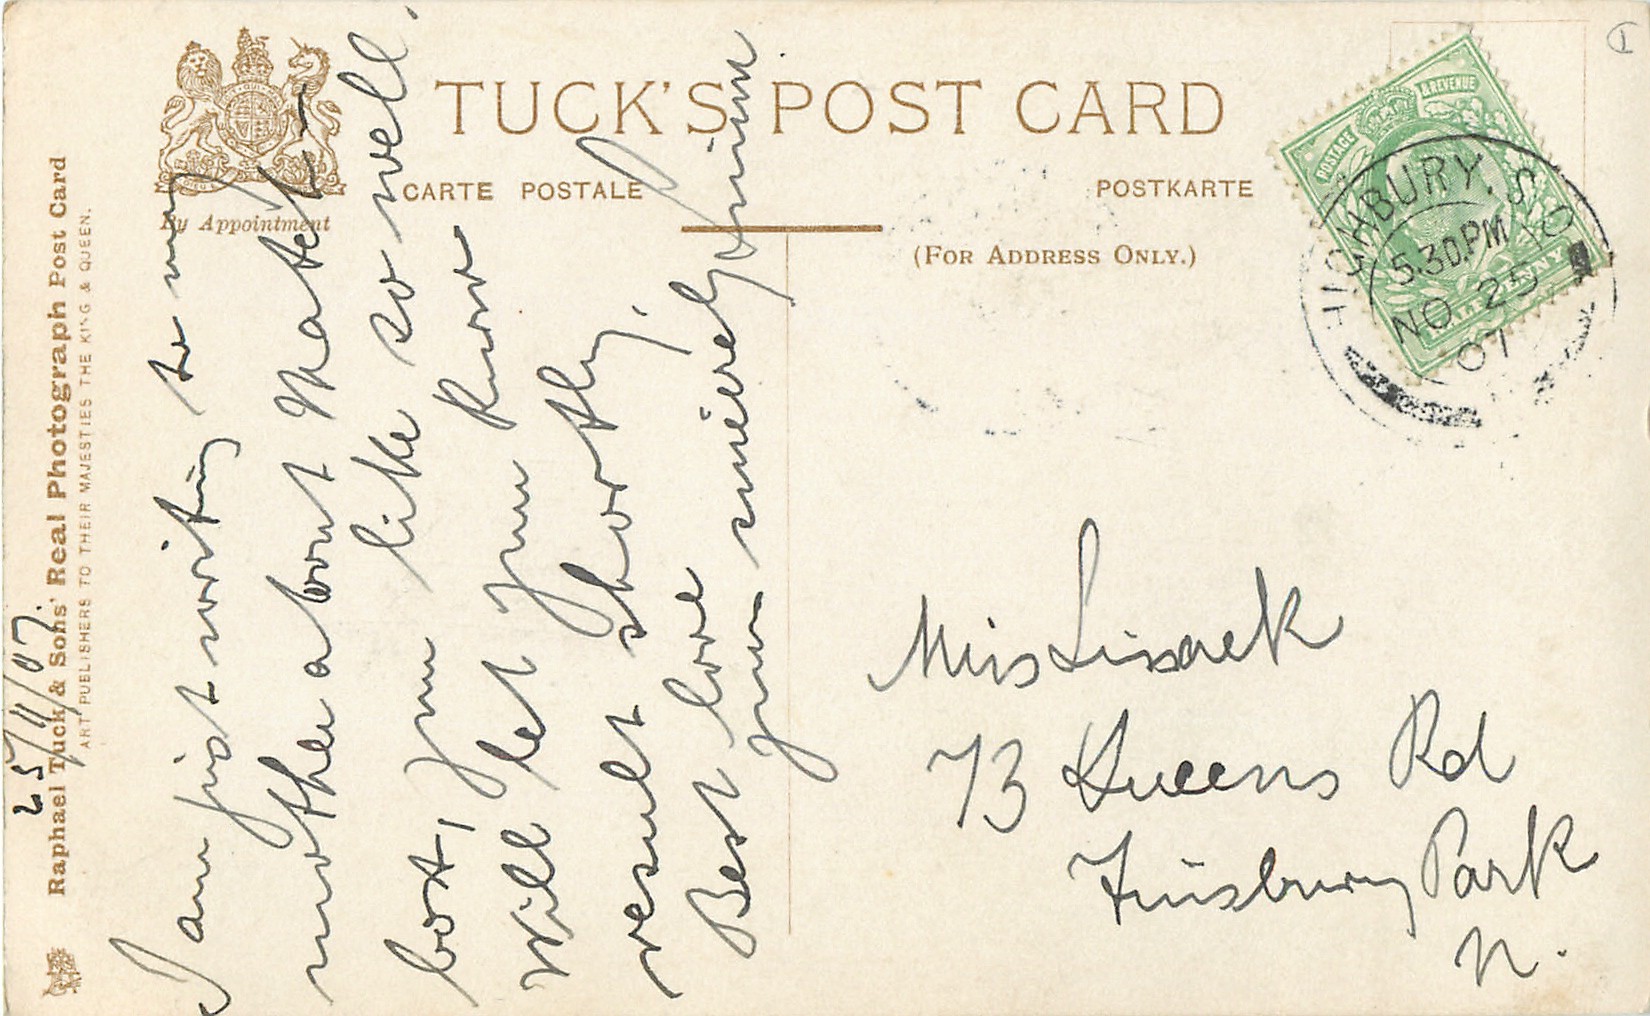 TUCK'S POST CARD
CARTE POSTALE
POSTKARTE
By Appointment
(FOR ADDRESS ONLY.)
Raphael Tuck & Sons' Real Photograph Post Card
ART PUBLISHERS TO THEIR MAJESTIES THE KING & QUEEN.
POSTAGE & REVENUE
HALFPENNY
HIGHBURY. S.O
5.30.PM
NO 25
07
25/11/07.
I am just writing to my
mother about that
box, you like so well.
Will let you know
result shortly.
Best love
yours sincerely
Miss Lissack
73 Queens Rd
Finsbury Park
N.
1